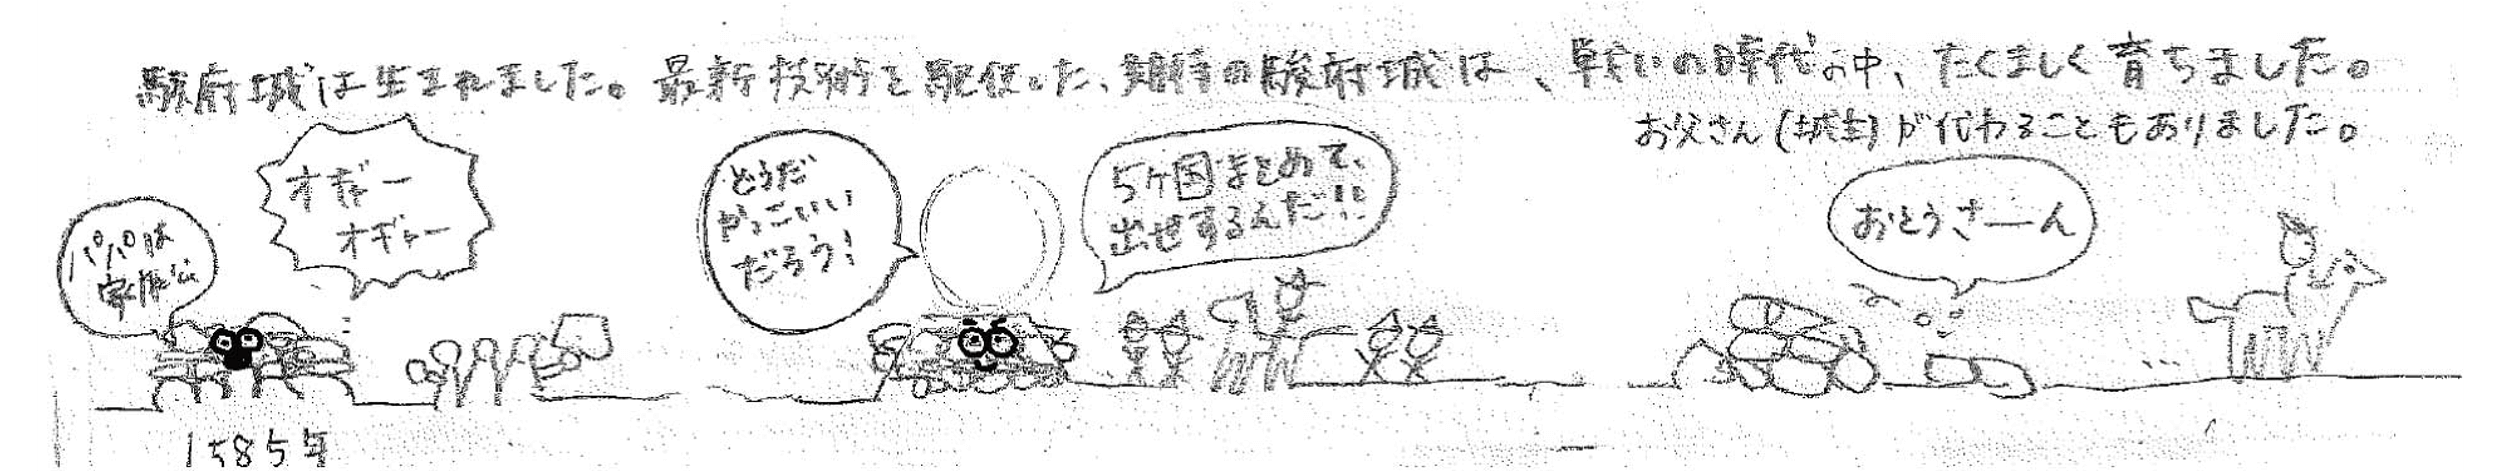 駿府城は生まれました。最新技術を駆使した、期待の駿府城は、戦いの時代の中、たくましく育ちました。
お父さん(城主)が代わることもありました。
パパは
家康公
オギャー
オギャー
どうだ
かっこいい
だろう!
5ヶ国まとめて、
出世するんだ!!
おとうさーん
1585年